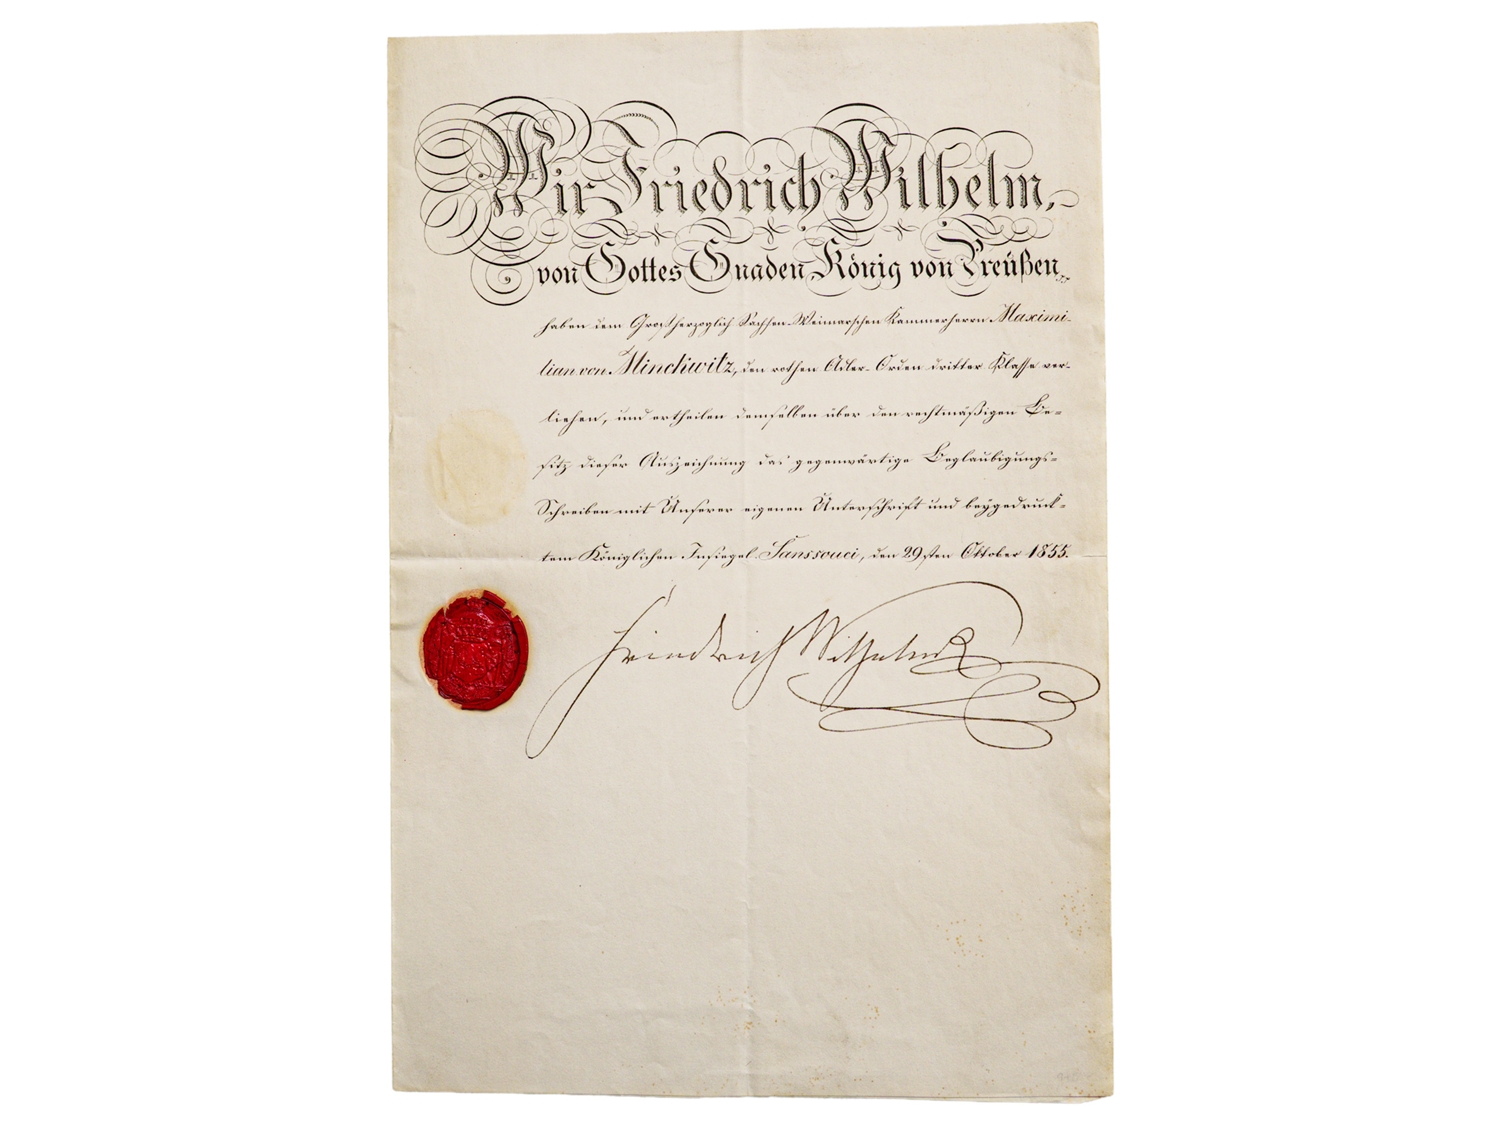 Wir Friedrich Wilhelm,
von Gottes Gnaden König von Preußen
haben dem Großherzoglich Sachsen-Weimarschen Kammerherrn Maximi-
lian von Minckwitz, den rothen Adler-Orden dritter Klasse ver-
liehen, und ertheilen demselben über den rechtmäßigen Be-
sitz dieser Auszeichnung das gegenwärtige Beglaubigungs-
Schreiben mit Unserer eigenen Unterschrift und beygedruck-
tem Königlichen Insiegel. Sanssouci, den 29sten October 1855.
Friedrich Wilhelm